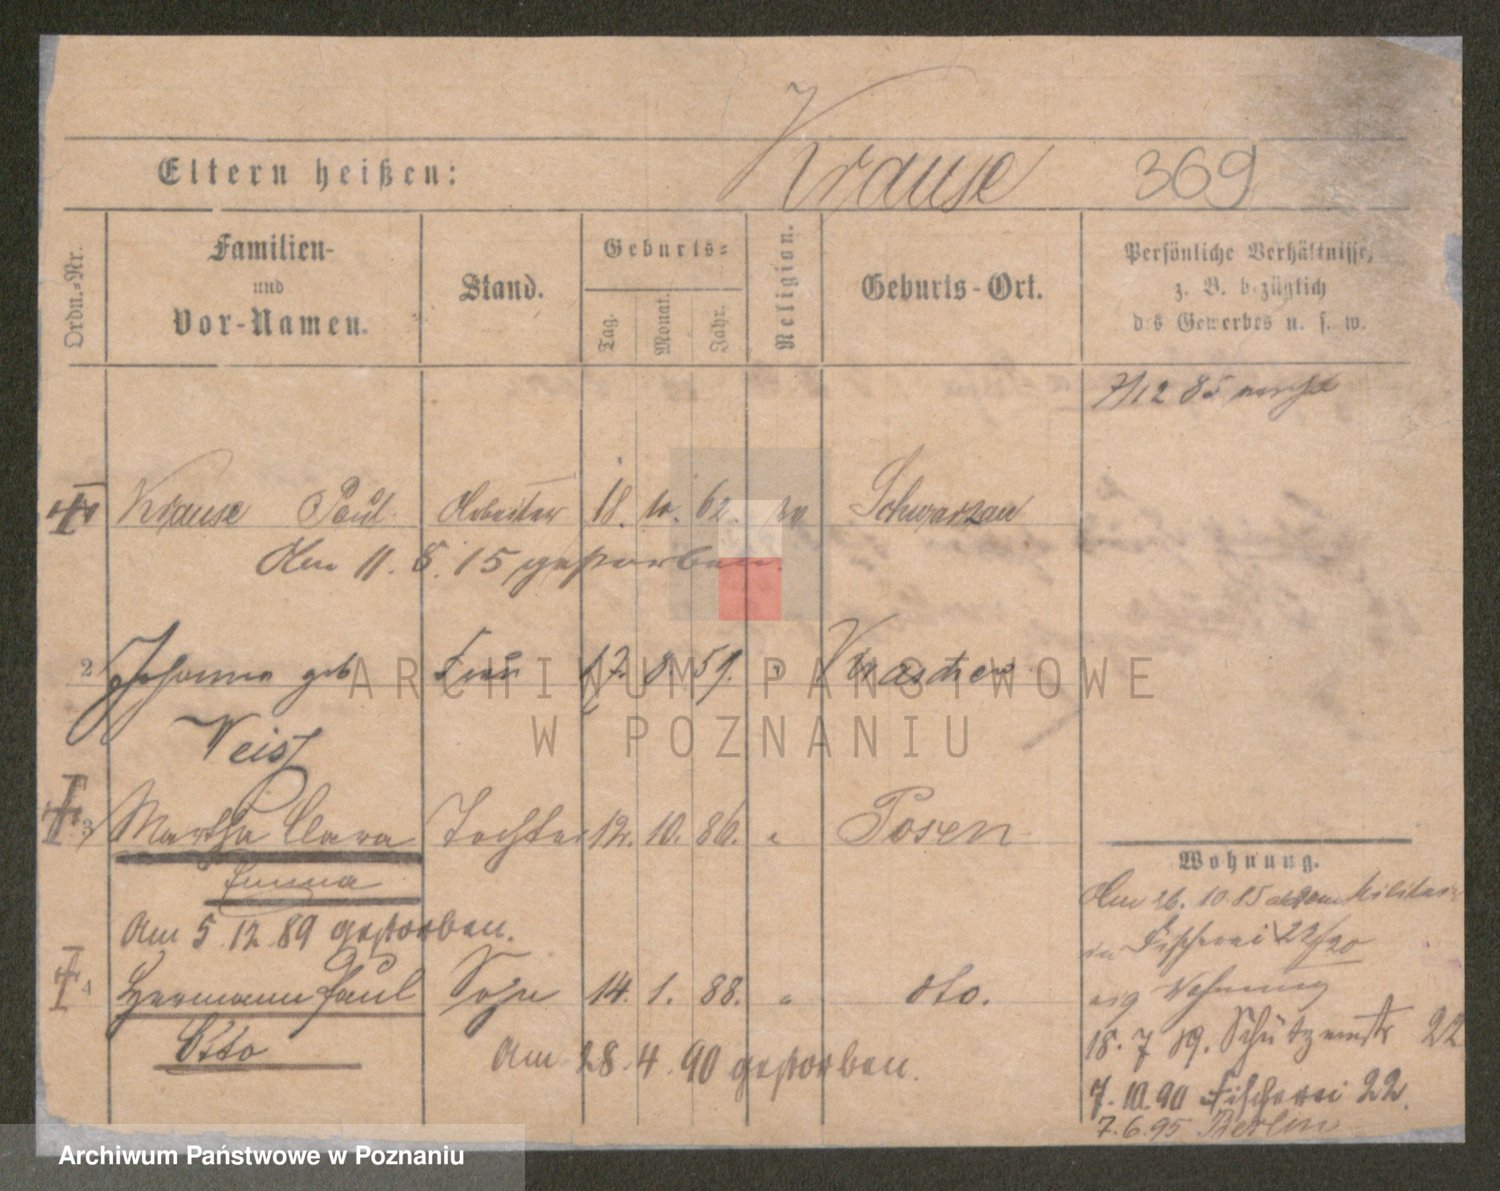 Krause 369
Eltern heißen:
Ordn.-Nr.
Familien-
und
Vor-Namen.
Stand.
Geburts-
Tag.
Monat.
Jahr.
Religion.
Geburts-Ort.
Persönliche Verhältnisse,
z. B. bezüglich
des Gewerbes u. s. w.
7/12 85
Krause Paul Arbeiter 18. 10. 62. Schwarzau
Am 11. 8. 15 gestorben.
2 Johanna geb Frau 17. 8. 59. "
Weist
3 Martha Clara Tochter 12. 10. 86. " Posen
Emma
Am 5. 12. 89 gestorben.
4 Hermann Paul Sohn 14. 1. 88. " dto.
Otto
Am 28. 4. 90 gestorben.
Wohnung.
Am 26. 10. 85 Militair
in Fischerei 22/20
eig Wohnung
18. 7 89. Schützenstr 22
7. 10. 90 Fischerei 22.
7. 6. 95 Berlin
ARCHIWUM PAŃSTWOWE
W POZNANIU
Archiwum Państwowe w Poznaniu